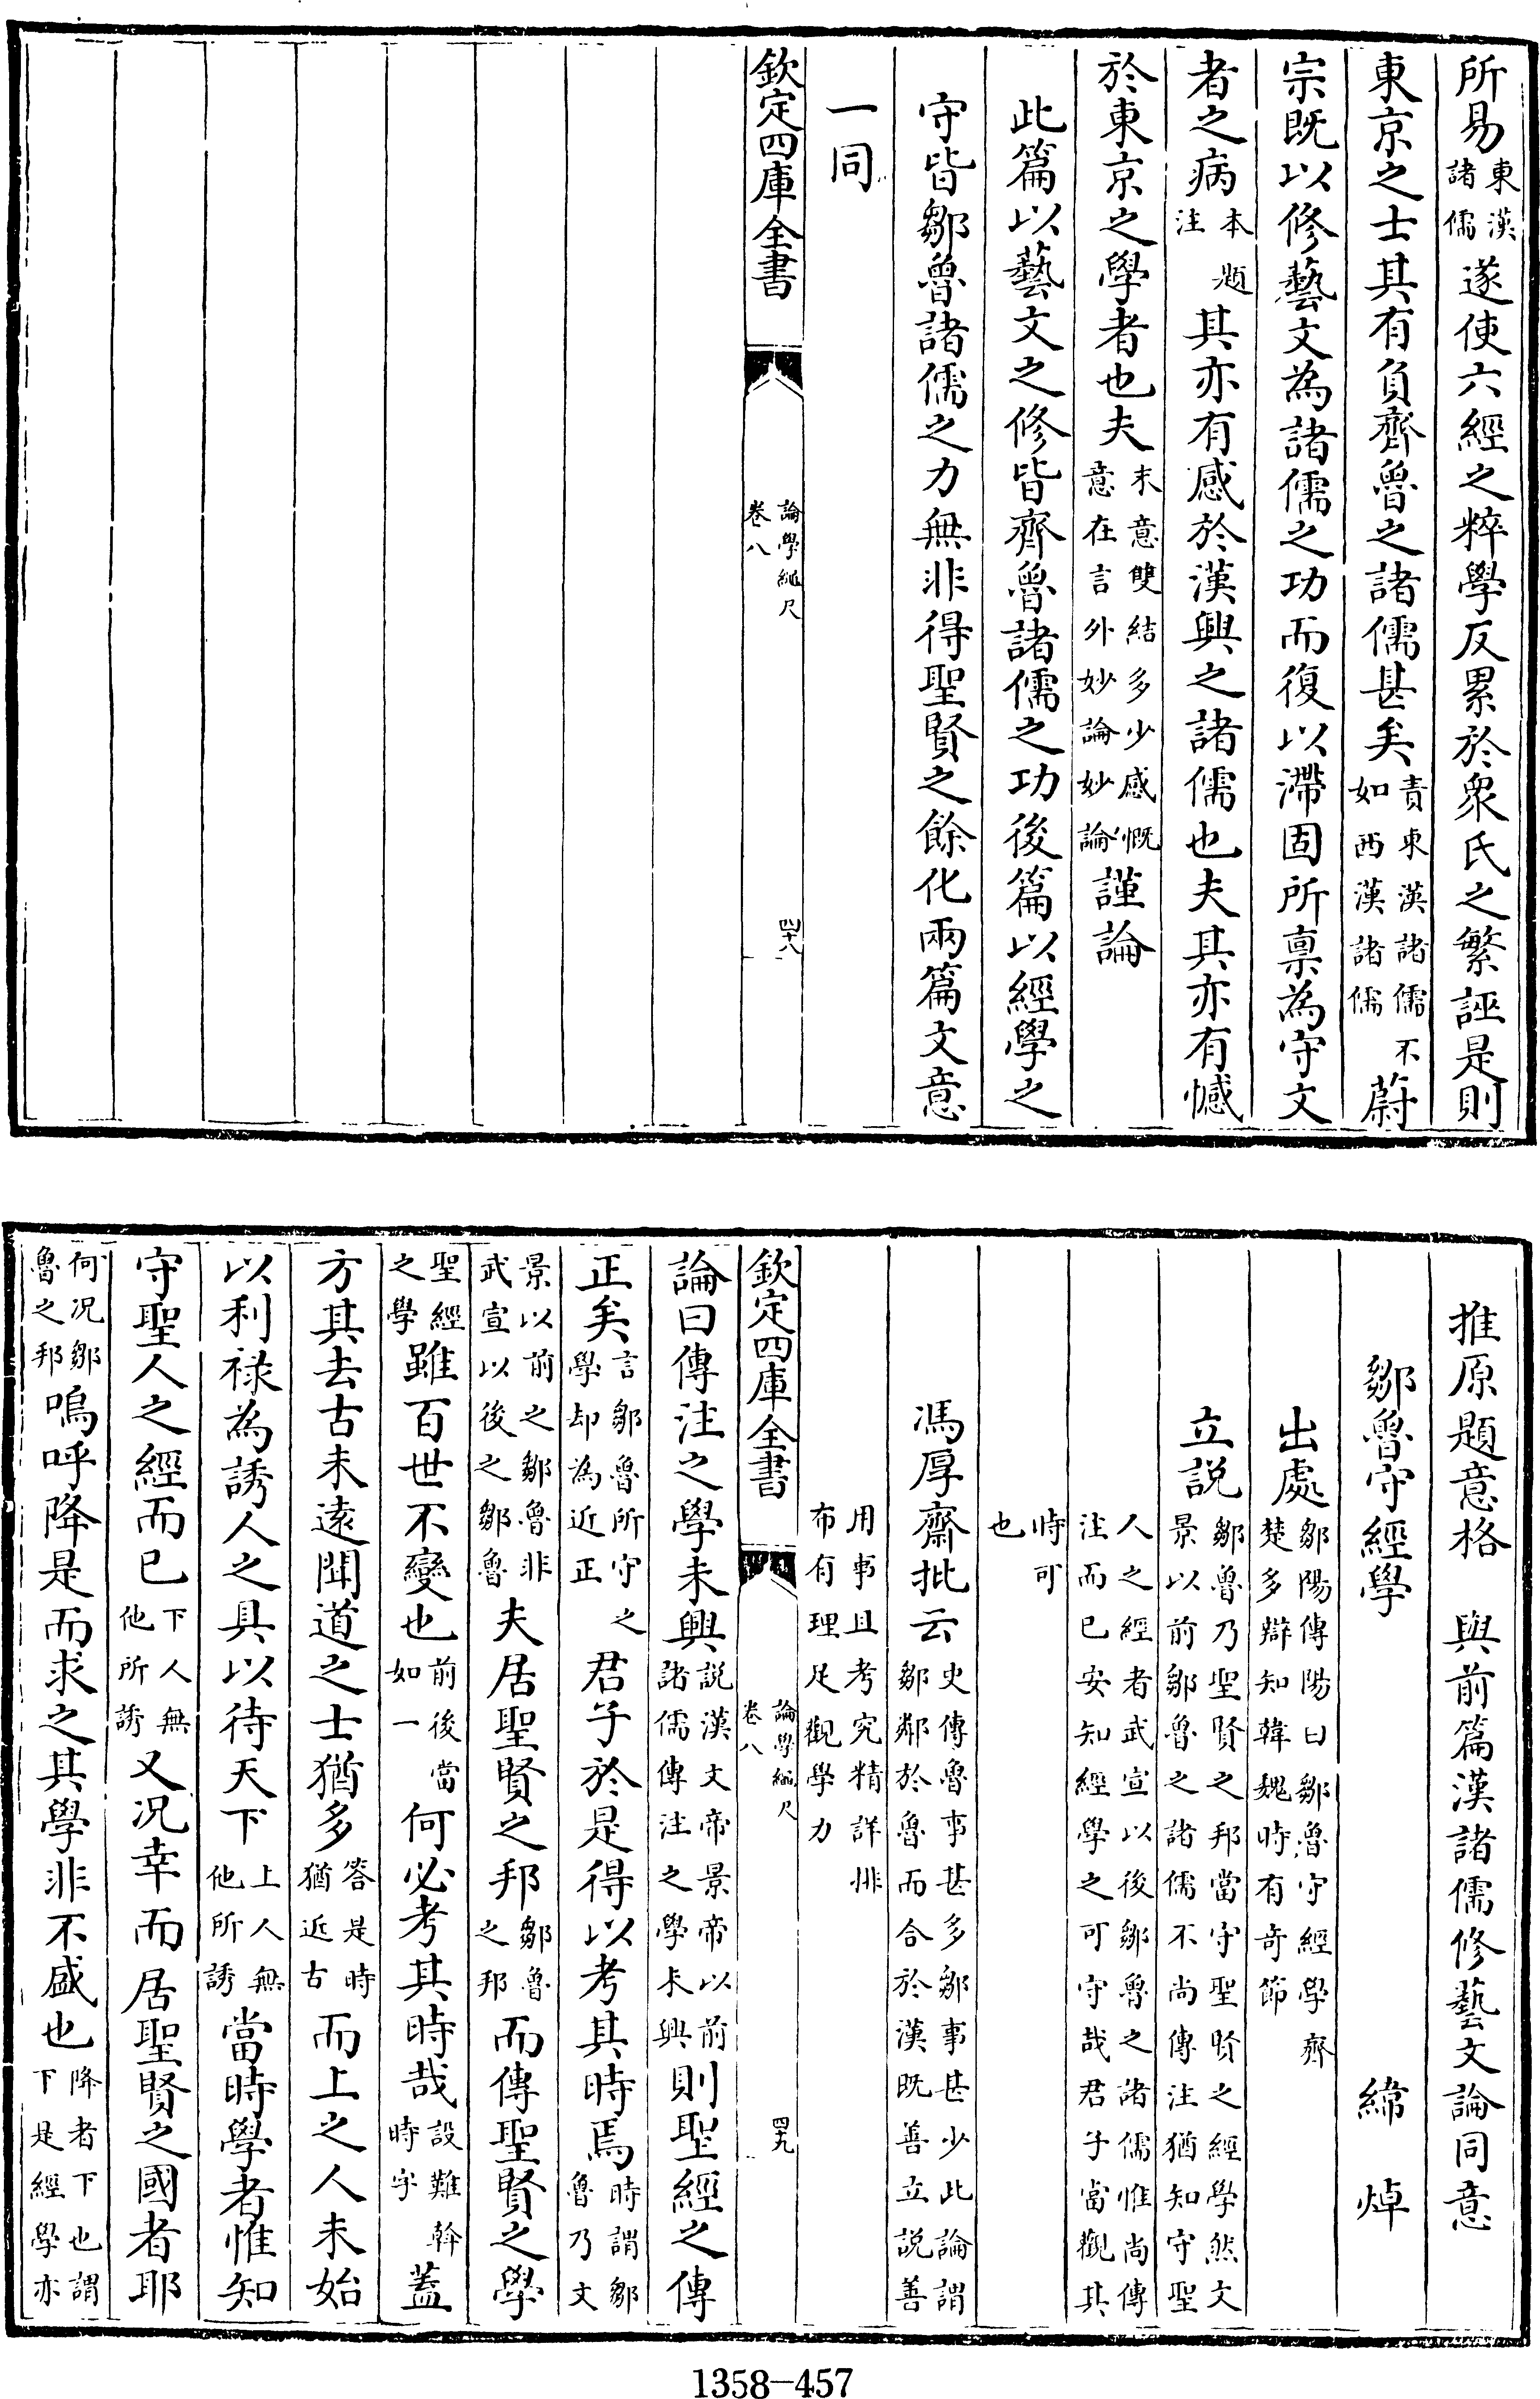 所易東漢諸儒遂使六經之粹學反累於衆氏之繁誣是則
東京之士其有負齊魯之諸儒甚矣責東漢諸儒不如西漢諸儒蔚
宗既以修藝文為諸儒之功而復以滯固所禀為守文
者之病本題注其亦有感於漢興之諸儒也夫其亦有憾
於東京之學者也夫末意雙結多少感慨意在言外妙論妙論謹論
此篇以藝文之修皆齊魯諸儒之功後篇以經學之
守皆鄒魯諸儒之力無非得聖賢之餘化兩篇文意
一同
欽定四庫全書
論學繩尺
卷八
四十八
推原題意格 與前篇漢諸儒修藝文論同意
鄒魯守經學 緯焯
出處鄒陽傳陽曰鄒魯守經學齊楚多辯知韓魏時有奇節
立説鄒魯乃聖賢之邦當守聖賢之經學然文景以前鄒魯之諸儒不尚傳注猶知守聖
人之經者武宣以後鄒魯之諸儒惟尚傳注而已安知經學之可守哉君子當觀其
時可也
馮厚齋批云史傳魯事甚多鄒事甚少此論謂鄒鄰於魯而合於漢既善立説善
用事且考究精詳排布有理足觀學力
欽定四庫全書
論學繩尺
卷八
四十九
論曰傳注之學未興説漢文帝景帝以前諸儒傳注之學未興則聖經之傳
正矣言鄒魯所守之學却為近正君子於是得以考其時焉時謂鄒魯乃文
景以前之鄒魯非武宣以後之鄒魯夫居聖賢之邦鄒魯之邦而傳聖賢之學
聖經之學雖百世不變也前後當如一何必考其時哉設難斡時字蓋
方其去古未遠聞道之士猶多答是時猶近古而上之人未始
以利祿為誘人之具以待天下上人無他所誘當時學者惟知
守聖人之經而已下人無他所誘又况幸而居聖賢之國者耶
何况鄒魯之邦嗚呼降是而求之其學非不盛也降者下也謂下是經學亦
1358-457